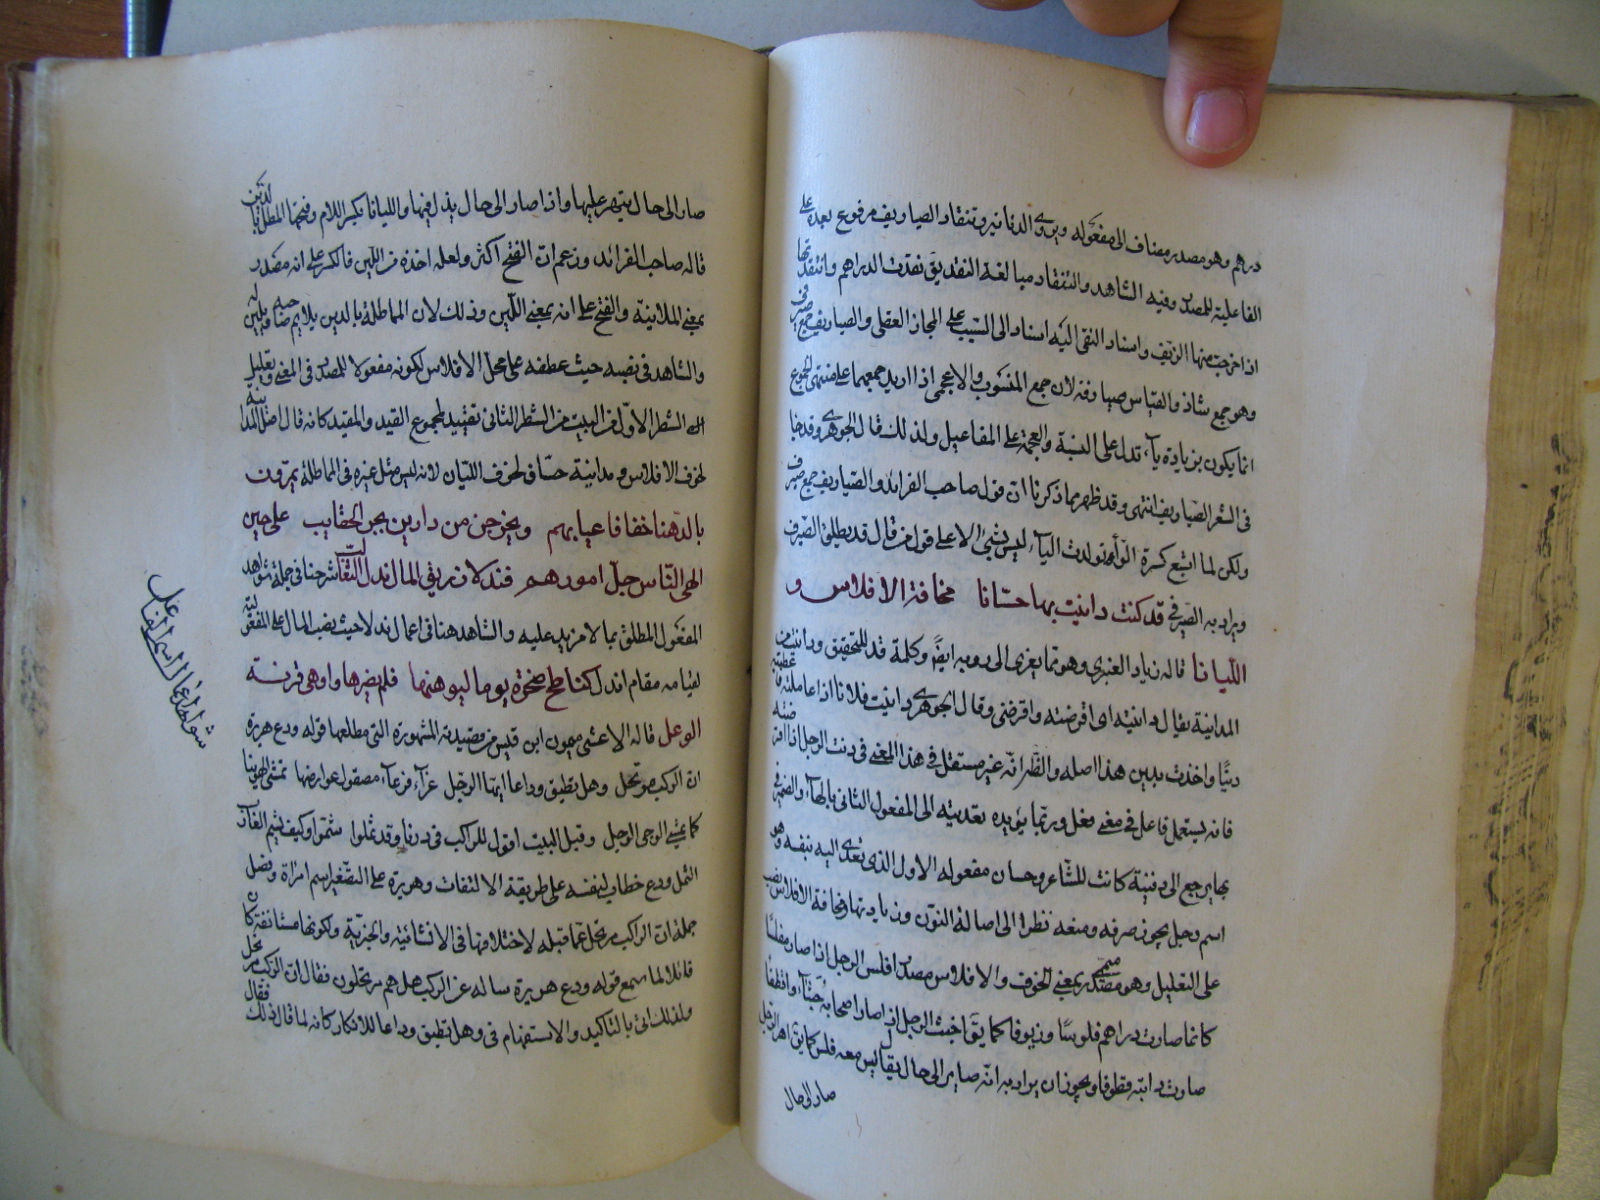 دراهم وهو مصدر مضاف الى مفعوله ويروى الدنانير وتنقاد الصياريف مرفوع بعده على
الفاعلية للمصدر وفيه الشاهد والتنقاد مبالغة النقد يق نقدت الدراهم وانتقدتها
اذا خرجت منها الزيف واسناد النفى اليه اسناد الى السبب على المجاز العقلى والصياريف جمع صيرفى
وهو جمع شاذ والقياس صيارفة لان جمع المنسوب والاعجمى اذا اريد جمعهما على منتهى الجموع
انما يكون بزيادة ياء تدل على النسبة والعجمة على المفاعيل ولذلك قال الجوهرى وقد جا
فى الشعر الصياريف انتهى وقد ظهر بما ذكرنا ان قول صاحب الفرائد والصياريف جمع صيرف
ولكن لما اشبع كسرة الراء تولدت الياء ليس بشئ الا على قول من قال قد يطلق الصيرف
ويراد به الصيرفى قد كنت داينت بها حسانا مخافة الافلاس و
الليانا قاله زياد العنبرى وهو مما يعزى الى روبه ايضا وكلمة قد للتحقيق وداينت من
المداينة يقال داينته اى اقرضته واقرضنى وقال الجوهرى داينت فلانا اذا عاملته فاعطيته
دينا واخذت بدين هذا اصله والظ انه غير مستقل فى هذا المعنى فى دنت الرجل اذا اقرضته
فانه يستعمل فاعل فى معنى فعل وربما يؤيده تعديته الى المفعول الثانى بالهاء والضمير فى
بها يرجع الى دفينة كانت للشاعر وحسان مفعوله الاول الذى تعدى اليه بنفسه وهو
اسم رجل يجوز صرفه ومنعه نظرا الى اصالة النون وزيادتها ومخافة الافلاس نصب
على التعليل وهو مصدر ميمى بمعنى الخوف والافلاس مصدر افلس الرجل اذا صار مفلسا
كانما صارت دراهمه فلوسا وزيوفا كما يق اخبث الرجل اذا صار اصحابه خبثاء واقطف اذا
صارت دابته قطوفا ويجوز ان يراد به انه صار الى حال يقال ليس معه فلس كما يق اقهر الرجل
صار الى حال
صار الى حال يقهر عليها واذل صار الى حال يذل فيها والليانا بكسر اللام وفتحها المطل بالدين
قاله صاحب الفرائد وزعم ان الفتح اكثر ولعله اخذه من اللين فالكسر على انه مصدر
بمعنى الملاينة والفتح على انه بمعنى اللين وذلك لان المماطلة بالدين يلايم صاحبه ويلين له
والشاهد فى نصبه حيث عطفه على محل الافلاس لكونه مفعولا للمصدر فى المعنى وتعليل
الشطر الاول من البيت من الشطر الثانى تقييد لمجموع القيد والمقيد كانه قال اصل المداينة
لخوف الافلاس ومداينة حسان لخوف الليان لانه ليس مثل غيره فى المماطلة يمرون
بالدهنا خفافا عيابهم ويخرجن من دارين بجر الحقايب على حين
الهى الناس جل امورهم فندلا زريق المال ندل الثعالب شرحنا فى جملة شواهد
المفعول المطلق بما لا مزيد عليه والشاهد هنا فى اعمال ندلا حيث نصب المال على المفعولية
لقيامه مقام اندل كناطح صخرة يوما ليوهنها فلم يضرها واوهى قرنه
الوعل قاله الاعشى ميمون ابن قيس من قصيدته المشهورة التى مطلعها قوله ودع هريرة
ان الركب مرتحل وهل تطيق وداعا ايها الرجل غراء فرعاء مصقول عوارضها تمشى الهوينا
كما يمشى الوجى الوحل وقبل البيت اقول للركب فى درنا وقد ثملوا شيموا وكيف يشيم الشارب
الثمل ودع خطاب لنفسه على طريقة الالتفات وهريرة على التصغير اسم امراة وفصل
جملة ان الركب مرتحل عما قبله لاختلافهما فى الانشائية والخبرية ولكونها مستانفة كان
قائلا لما سمع قوله ودع هريرة ساله عن الركب هل هم مرتحلون فقال ان الركب مرتحل
ولذلك اتى بالتاكيد والاستفهام فى وهل تطيق وداعا للانكار كانه لما قال ذلك فقال
شواهد اعمال اسم الفاعل